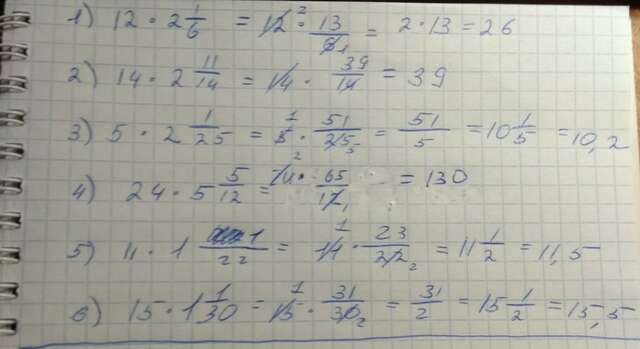 1) 12 · 2 1/6 = 12 2 · 13/6 1 = 2 · 13 = 26
2) 14 · 2 11/14 = 14 · 39/14 = 39
3) 5 · 2 1/25 = 5 1 · 51/25 5 = 51/5 = 10 1/5 = 10,2
4) 24 · 5 5/12 = 24 2 · 65/12 1 = 130
5) 11 · 1 1/22 = 11 1 · 23/22 2 = 11 1/2 = 11,5
6) 15 · 1 1/30 = 15 1 · 31/30 2 = 31/2 = 15 1/2 = 15,5